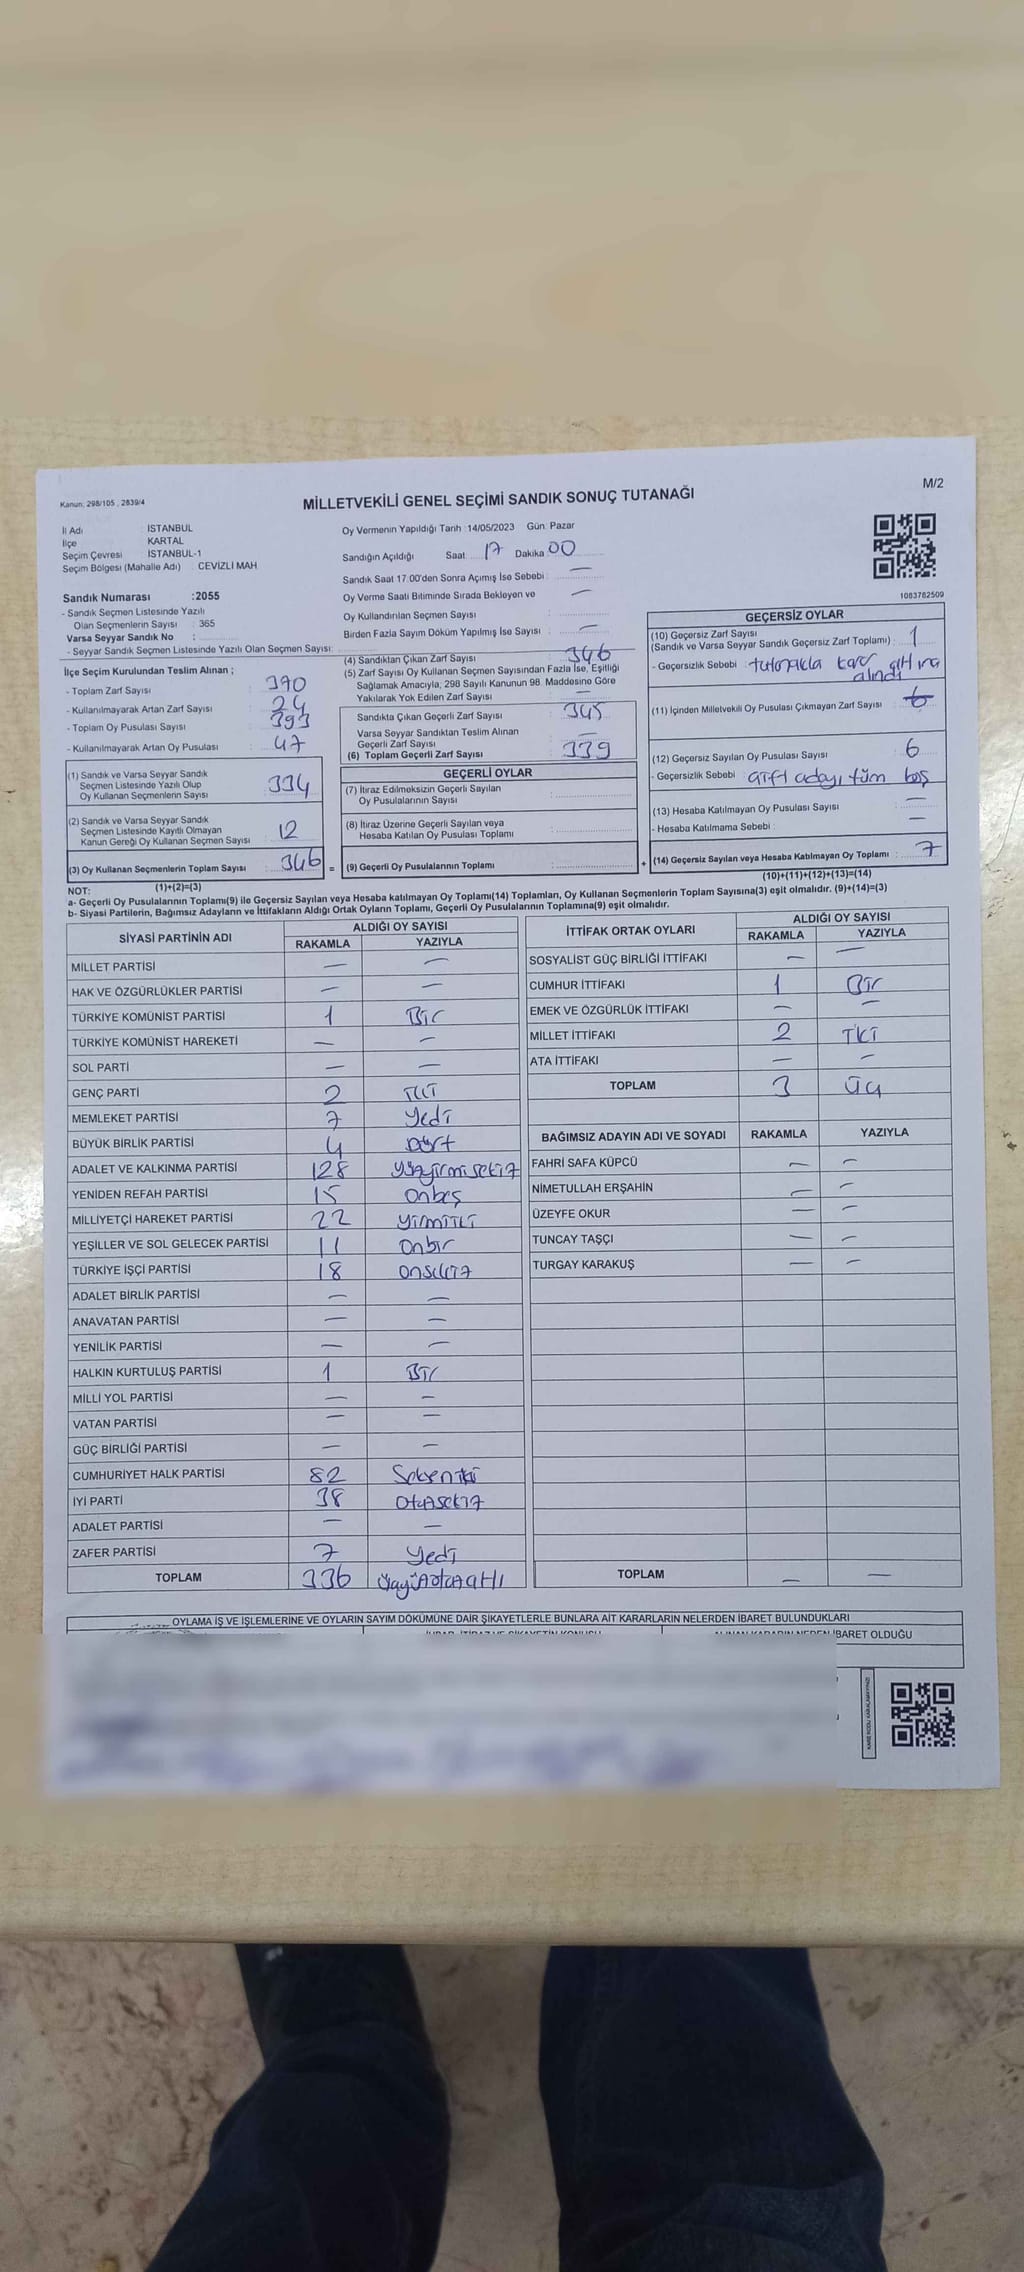 Kanun: 298/105 , 2839/4
M/2
MİLLETVEKİLİ GENEL SEÇİMİ SANDIK SONUÇ TUTANAĞI
İl Adı : İSTANBUL
İlçe : KARTAL
Seçim Çevresi : İSTANBUL-1
Seçim Bölgesi (Mahalle Adı) : CEVİZLİ MAH
Sandık Numarası :2055
- Sandık Seçmen Listesinde Yazılı
Olan Seçmenlerin Sayısı : 365
Varsa Seyyar Sandık No :
- Seyyar Sandık Seçmen Listesinde Yazılı Olan Seçmen Sayısı:
Oy Vermenin Yapıldığı Tarih :14/05/2023 Gün: Pazar
Sandığın Açıldığı Saat 17 Dakika 00
Sandık Saat 17.00'den Sonra Açımış İse Sebebi : —
Oy Verme Saati Bitiminde Sırada Bekleyen ve —
Oy Kullandırılan Seçmen Sayısı :
Birden Fazla Sayım Döküm Yapılmış İse Sayısı : —
1083762509
İlçe Seçim Kurulundan Teslim Alınan ;
- Toplam Zarf Sayısı : 370
- Kullanılmayarak Artan Zarf Sayısı : 24
- Toplam Oy Pusulası Sayısı : 393
- Kullanılmayarak Artan Oy Pusulası : 47
(1) Sandık ve Varsa Seyyar Sandık
Seçmen Listesinde Yazılı Olup
Oy Kullanan Seçmenlerin Sayısı : 334
(2) Sandık ve Varsa Seyyar Sandık
Seçmen Listesinde Kayıtlı Olmayan
Kanun Gereği Oy Kullanan Seçmen Sayısı : 12
(3) Oy Kullanan Seçmenlerin Toplam Sayısı : 346 =
(1)+(2)=(3)
(4) Sandıktan Çıkan Zarf Sayısı : 346
(5) Zarf Sayısı Oy Kullanan Seçmen Sayısından Fazla İse, Eşitliği
Sağlamak Amacıyla, 298 Sayılı Kanunun 98. Maddesine Göre
Yakılarak Yok Edilen Zarf Sayısı : —
Sandıkta Çıkan Geçerli Zarf Sayısı : 345
Varsa Seyyar Sandıktan Teslim Alınan
Geçerli Zarf Sayısı : —
(6) Toplam Geçerli Zarf Sayısı : 339
GEÇERLİ OYLAR
(7) İtiraz Edilmeksizin Geçerli Sayılan
Oy Pusulalarının Sayısı :
(8) İtiraz Üzerine Geçerli Sayılan veya
Hesaba Katılan Oy Pusulası Toplamı :
(9) Geçerli Oy Pusulalarının Toplamı : +
GEÇERSİZ OYLAR
(10) Geçersiz Zarf Sayısı
(Sandık ve Varsa Seyyar Sandık Geçersiz Zarf Toplamı) : 1
- Geçersizlik Sebebi : tutanakla karar altına
alındı
(11) İçinden Milletvekili Oy Pusulası Çıkmayan Zarf Sayısı : 6
(12) Geçersiz Sayılan Oy Pusulası Sayısı : 6
- Geçersizlik Sebebi : çift adayı tüm boş
(13) Hesaba Katılmayan Oy Pusulası Sayısı : —
- Hesaba Katılmama Sebebi : —
(14) Geçersiz Sayılan veya Hesaba Katılmayan Oy Toplamı : 7
(10)+(11)+(12)+(13)=(14)
NOT:
a- Geçerli Oy Pusulalarının Toplamı(9) ile Geçersiz Sayılan veya Hesaba katılmayan Oy Toplamı(14) Toplamları, Oy Kullanan Seçmenlerin Toplam Sayısına(3) eşit olmalıdır. (9)+(14)=(3)
b- Siyasi Partilerin, Bağımsız Adayların ve İttifakların Aldığı Ortak Oyların Toplamı, Geçerli Oy Pusulalarının Toplamına(9) eşit olmalıdır.
SİYASİ PARTİNİN ADI ALDIĞI OY SAYISI
RAKAMLA YAZIYLA
MİLLET PARTİSİ — —
HAK VE ÖZGÜRLÜKLER PARTİSİ — —
TÜRKİYE KOMÜNİST PARTİSİ 1 Bir
TÜRKİYE KOMÜNİST HAREKETİ — —
SOL PARTİ — —
GENÇ PARTİ 2 İki
MEMLEKET PARTİSİ 7 Yedi
BÜYÜK BİRLİK PARTİSİ 4 Dört
ADALET VE KALKINMA PARTİSİ 128 Yüzyirmisekiz
YENİDEN REFAH PARTİSİ 15 onbeş
MİLLİYETÇİ HAREKET PARTİSİ 22 yirmiiki
YEŞİLLER VE SOL GELECEK PARTİSİ 11 Onbir
TÜRKİYE İŞÇİ PARTİSİ 18 onsekiz
ADALET BİRLİK PARTİSİ — —
ANAVATAN PARTİSİ — —
YENİLİK PARTİSİ — —
HALKIN KURTULUŞ PARTİSİ 1 Bir
MİLLİ YOL PARTİSİ — —
VATAN PARTİSİ — —
GÜÇ BİRLİĞİ PARTİSİ — —
CUMHURİYET HALK PARTİSİ 82 Sekseniki
İYİ PARTİ 38 Otuzsekiz
ADALET PARTİSİ — —
ZAFER PARTİSİ 7 Yedi
TOPLAM 336 üçyüzotuzaltı
İTTİFAK ORTAK OYLARI ALDIĞI OY SAYISI
RAKAMLA YAZIYLA
SOSYALİST GÜÇ BİRLİĞİ İTTİFAKI — —
CUMHUR İTTİFAKI 1 Bir
EMEK VE ÖZGÜRLÜK İTTİFAKI — —
MİLLET İTTİFAKI 2 İki
ATA İTTİFAKI — —
TOPLAM 3 üç
BAĞIMSIZ ADAYIN ADI VE SOYADI RAKAMLA YAZIYLA
FAHRİ SAFA KÜPCÜ — —
NİMETULLAH ERŞAHİN — —
ÜZEYFE OKUR — —
TUNCAY TAŞÇI — —
TURGAY KARAKUŞ — —
TOPLAM — —
OYLAMA İŞ VE İŞLEMLERİNE VE OYLARIN SAYIM DÖKÜMÜNE DAİR ŞİKAYETLERLE BUNLARA AİT KARARLARIN NELERDEN İBARET BULUNDUKLARI
ALINAN KARARIN NEDEN İBARET OLDUĞU